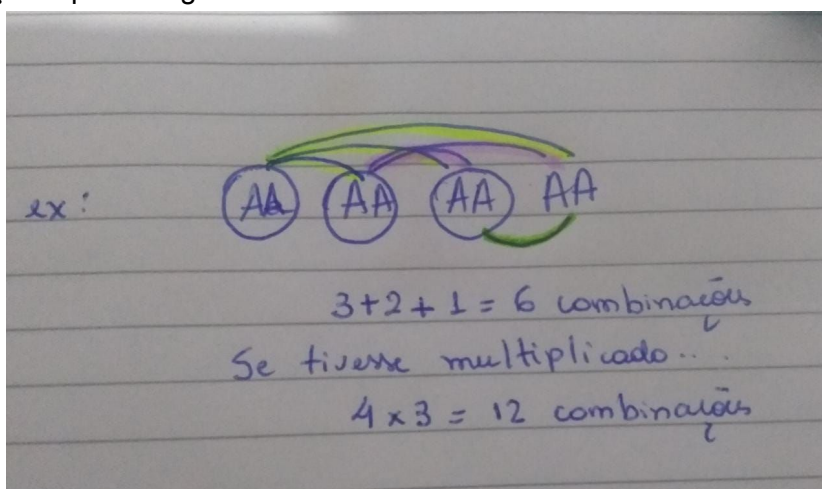 ex: AA AA AA AA
3+2+1 = 6 combinações
Se tivesse multiplicado...
4 x 3 = 12 combinações